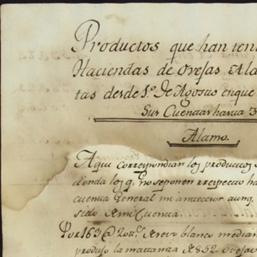 Productos que han teni
Haciendas de Ovejas Ala
tas desde 1º. de Agosto enque
Sus Cuentas hasta 3
Alamo.
Aqui correspondian los productos
donda los q. no seponen irrespecto ha
cuenta General mi antecesor aunq.
sido Ami Cuenta
Por 163 @ de sevo blanco median
produjo la matanza de 852 Ovejas